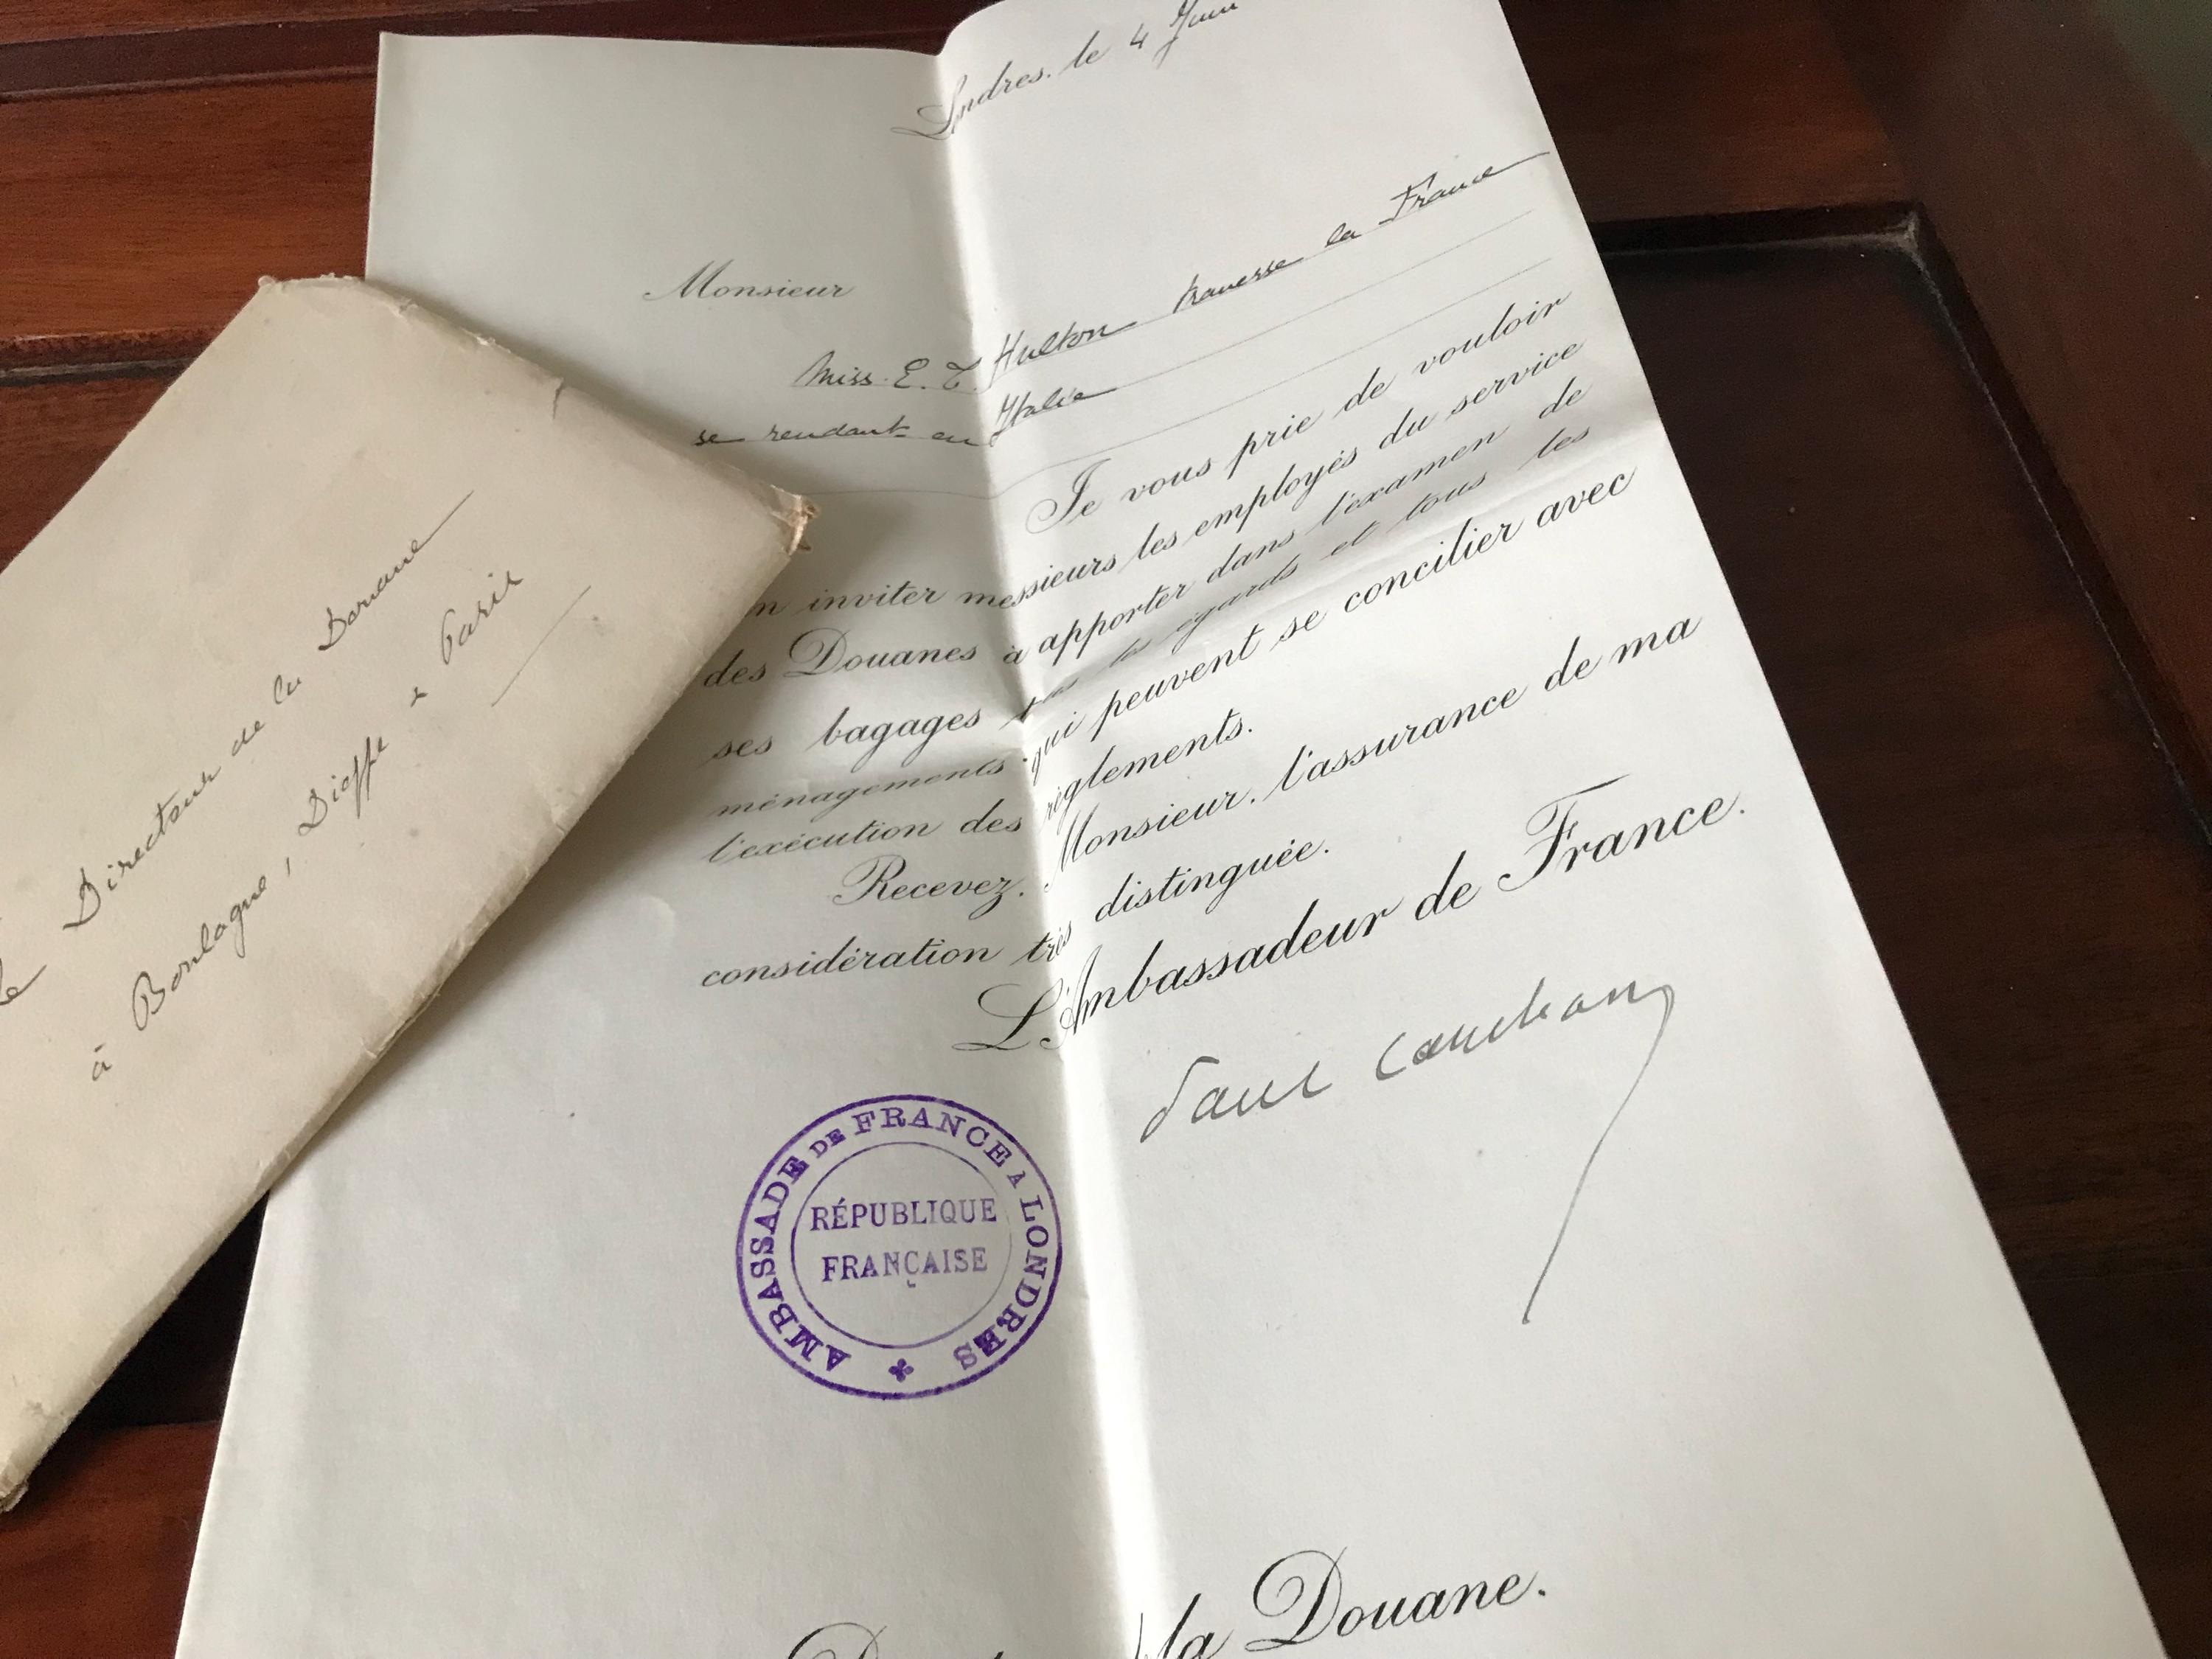 Londres, le 4 Juin
Monsieur
Miss. E. T. Hulton traverse la France
se rendant en Italie
Je vous prie de vouloir
n inviter messieurs les employés du service
des Douanes à apporter dans l'examen de
ses bagages tous les égards et tous les
ménagements qui peuvent se concilier avec
l'exécution des règlements.
Recevez, Monsieur, l'assurance de ma
considération très distinguée.
L'Ambassadeur de France.
Paul Cambon
AMBASSADE DE FRANCE A LONDRES
RÉPUBLIQUE
FRANÇAISE
la Douane.
Directeur de la Douane
à Boulogne, Dieppe & Paris